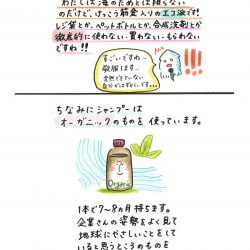 わたしは海のためとは限らない
のだけど、けっこう筋金入りのエコ派です!
レジ袋とか、ペットボトルとか、合成洗剤とか
徹底的に使わない・買わない・もらわない
ですね!!
すごいですね…
敬服します…
全然できていない
自分がはずかしいです…
!!!
ちなみにシャンプーは
オーガニックのものを使っています。
Organic
1本で7〜8ヵ月持ちます。
企業さんの姿勢をよく見て
地球にやさしいことをして
いると思うところのものを